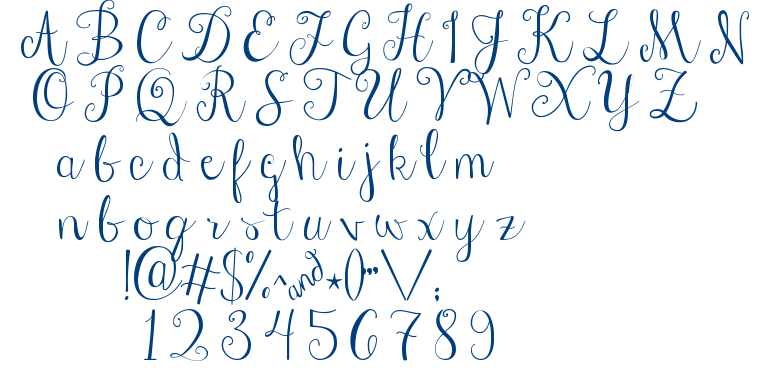 A B C D E F G H I J K L M N
O P Q R S T U V W X Y Z
a b c d e f g h i j k l m
n b o g r s t u v w x y z
! @ # $ % ^ and * ( ) " \ / ;
1 2 3 4 5 6 7 8 9